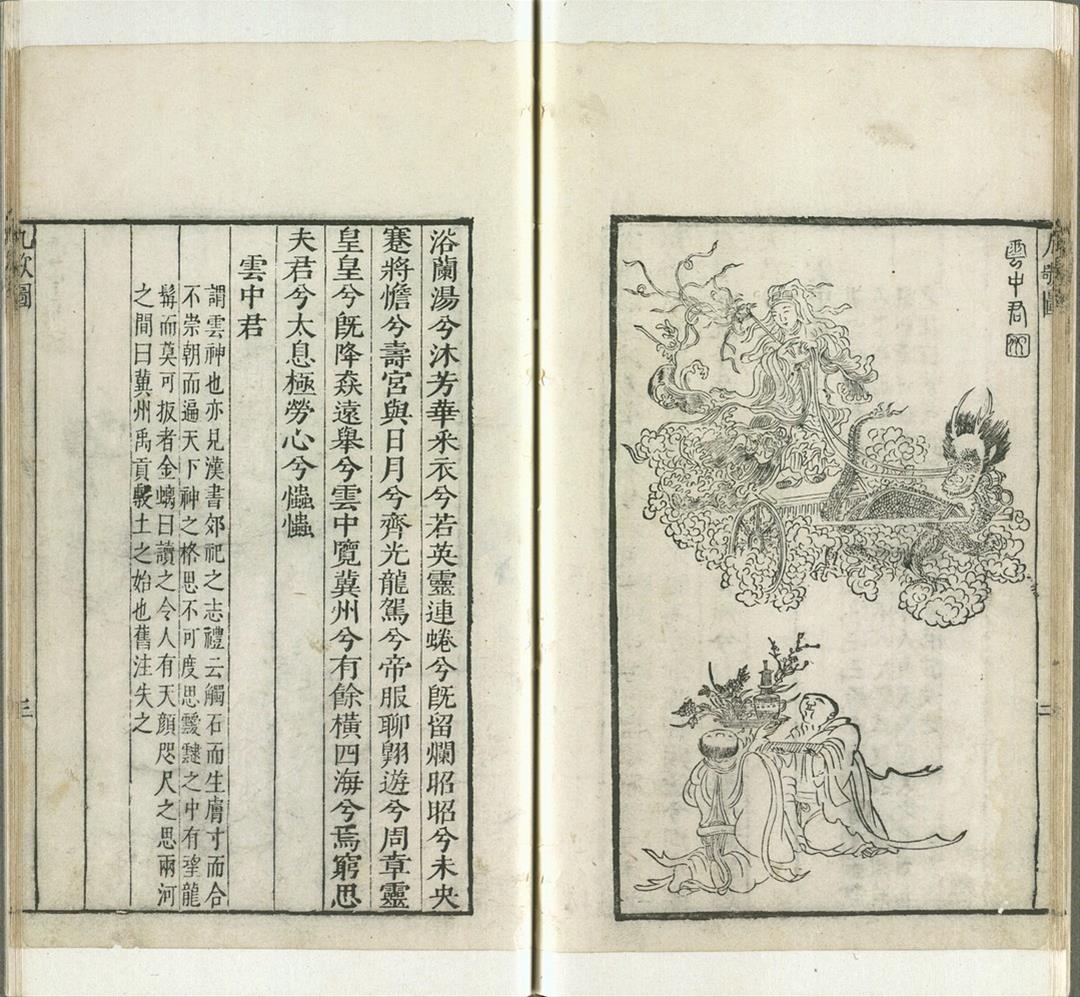 九歌圖
二
雲中君
浴蘭湯兮沐芳華采衣兮若英靈連蜷兮旣留爛昭昭兮未央
蹇將憺兮壽宮與日月兮齊光龍駕兮帝服聊翺遊兮周章靈
皇皇兮旣降猋遠舉兮雲中覽冀州兮有餘橫四海兮焉窮思
夫君兮太息極勞心兮𢥞𢥞
雲中君
謂雲神也亦見漢書郊祀之志禮云觸石而生膚寸而合
不崇朝而遍天下神之格思不可度思靉靆之中有望龍
髯而莫可扳者金螭曰讀之令人有天顏咫尺之思兩河
之間曰冀州禹貢土之始也舊注失之
九歌圖
三